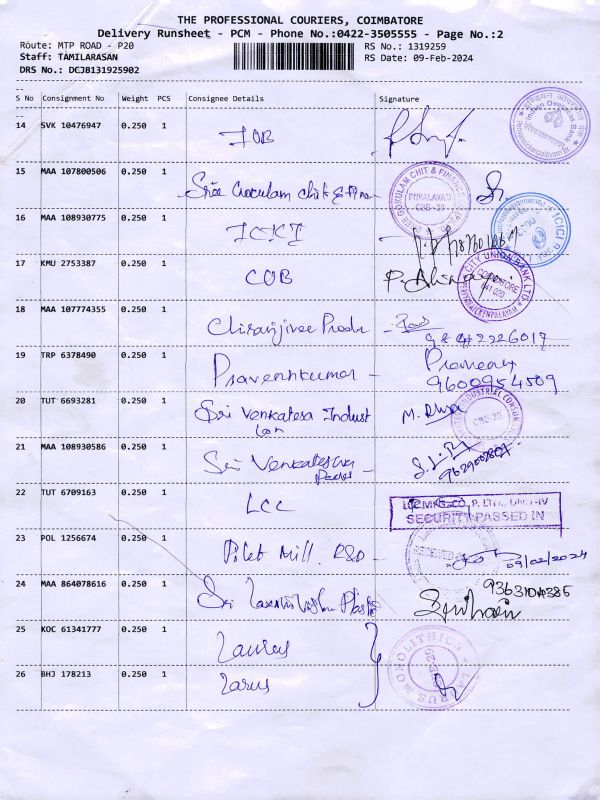 THE PROFESSIONAL COURIERS, COIMBATORE
Delivery Runsheet - PCM - Phone No.:0422-3505555 - Page No.:2
Route: MTP ROAD - P20
RS No.: 1319259
Staff: TAMILARASAN
RS Date: 09-Feb-2024
DRS No.: DCJB131925902
S No Consignment No Weight PCS Consignee Details Signature
14 SVK 10476947 0.250 1 IOB
15 MAA 107800506 0.250 1 Sree Gokulam chit & Fina
SREE GOKULAM CHIT & FINANCE
CBE-20
16 MAA 108930775 0.250 1 ICICI
17 KMU 2753387 0.250 1 CUB
CITY UNION BANK LTD
COIMBATORE
641 020
18 MAA 107774355 0.250 1 Chiranjivee Produ
19 TRP 6378490 0.250 1 Pravenkumar - Praveen
9600954509
20 TUT 6693281 0.250 1 Sri Venkatesa Indust
CBE-20
21 MAA 108930586 0.250 1 Sri Venkateshwa
22 TUT 6709163 0.250 1 LCC
SECURITY PASSED IN
23 POL 1256674 0.250 1 Pilot Mill. R&D
RECEIVED
09/02/2024
24 MAA 864078616 0.250 1 Sri
25 KOC 61341777 0.250 1 Laurus
26 BHJ 178213 0.250 1 Larus
LARUS MONOLITHICS